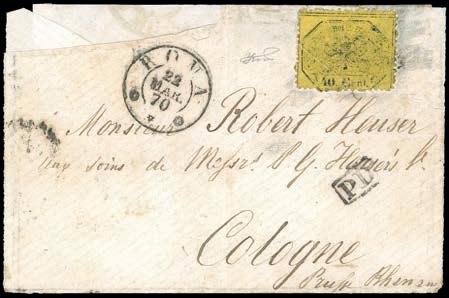 ROMA
22
MAR.
70
40 Cent.
Monsieur Robert Heuser
aux soins de Messrs P. G. Heusers
PD
Cologne
Prusse Rhenane